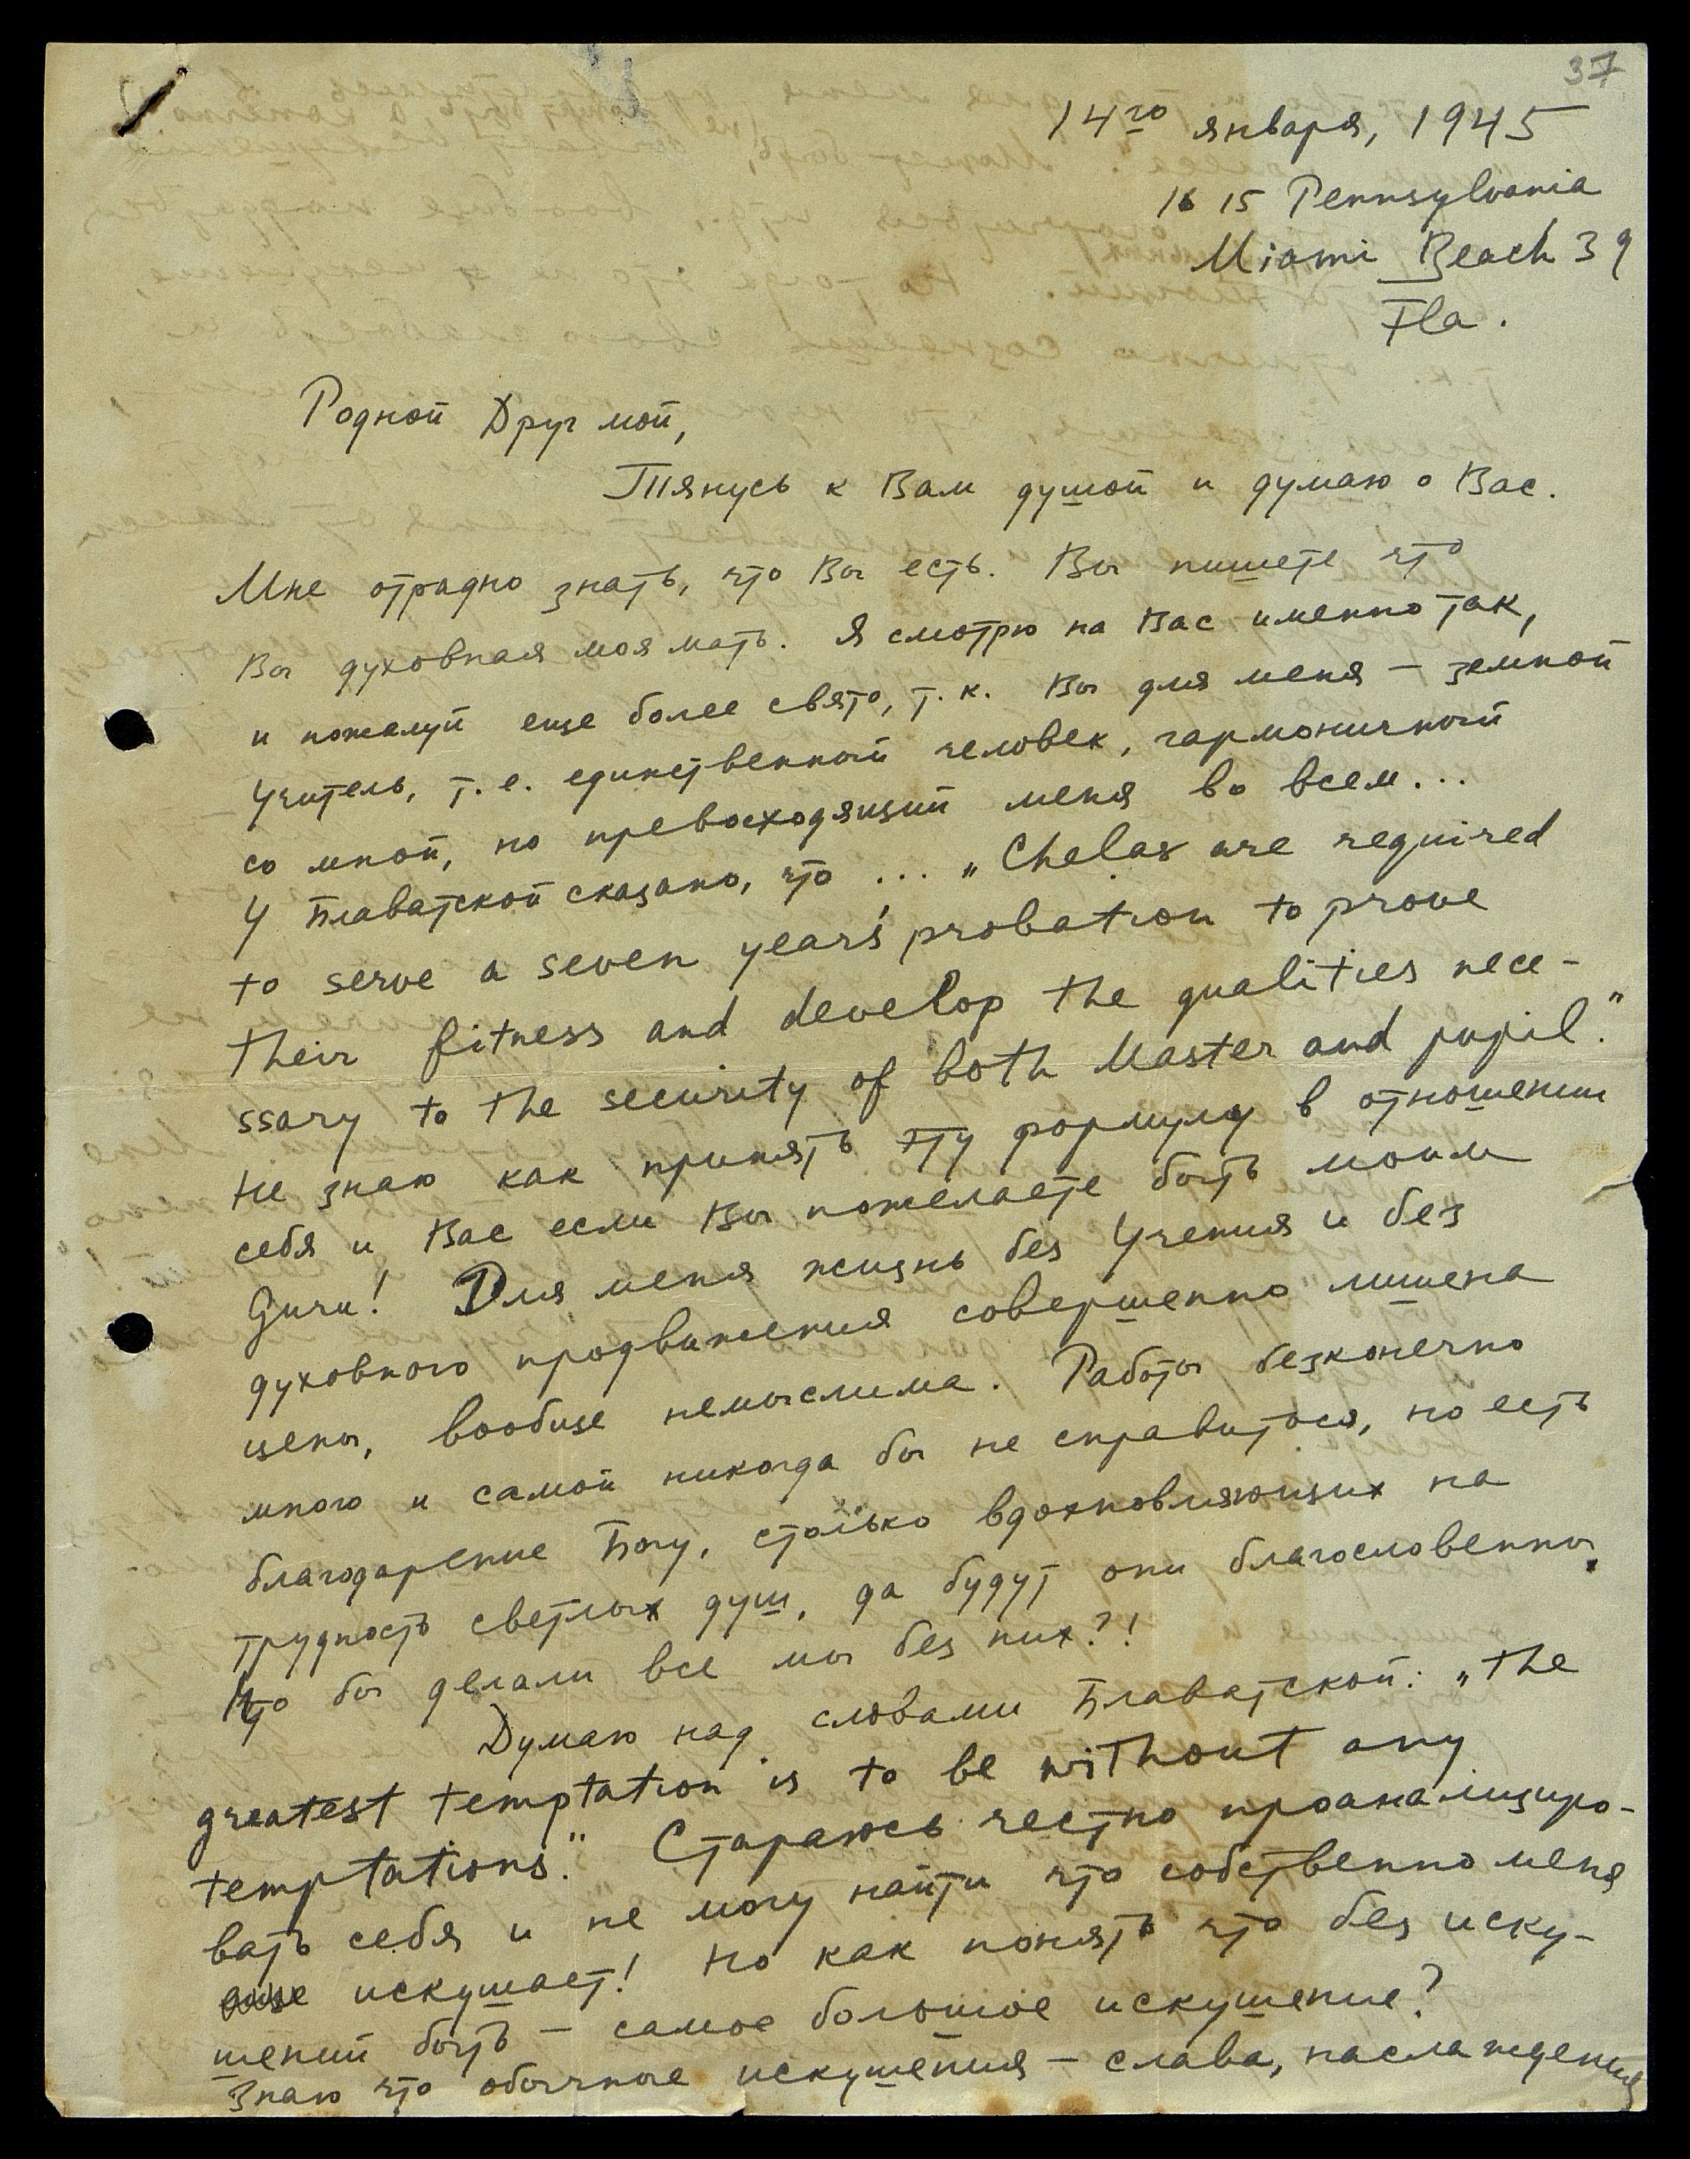 37
14го января, 1945
1615 Pennsylvania
Miami Beach 39
Fla.
Родной Друг мой,
Тянусь к Вам душой и думаю о Вас.
Мне отрадно знать, что Вы есть. Вы пишете что
Вы духовная моя мать. Я смотрю на Вас именно так,
и пожалуй еще более свято, т. к. Вы для меня — земной
Учитель, т. е. единственный человек, гармоничный
со мной, но превосходящий меня во всем...
У Блаватской сказано, что ... „Chelas are required
to serve a seven years' probation to prove
their fitness and develop the qualities nece-
ssary to the security of both Master and pupil."
Не знаю как принять эту формулу в отношении
себя и Вас если Вы пожелаете быть моим
Guru! Для меня жизнь без Учения и без
духовного продвижения совершенно лишена
цены, вообще немыслима. Работы безконечно
много и самой никогда бы не справиться, но есть
благодарение Богу, столько вдохновляющих на
трудность светлых душ, да будут они благословенны.
Что бы делали все мы без них?!
Думаю над словами Блаватской: „The
greatest temptation is to be without any
temptations." Стараюсь честно проанализиро-
вать себя и не могу найти что собственно меня
искушает! Но как понять что без иску-
шений быть — самое большое искушение?
Знаю что обычные искушения — слава, наслаждения